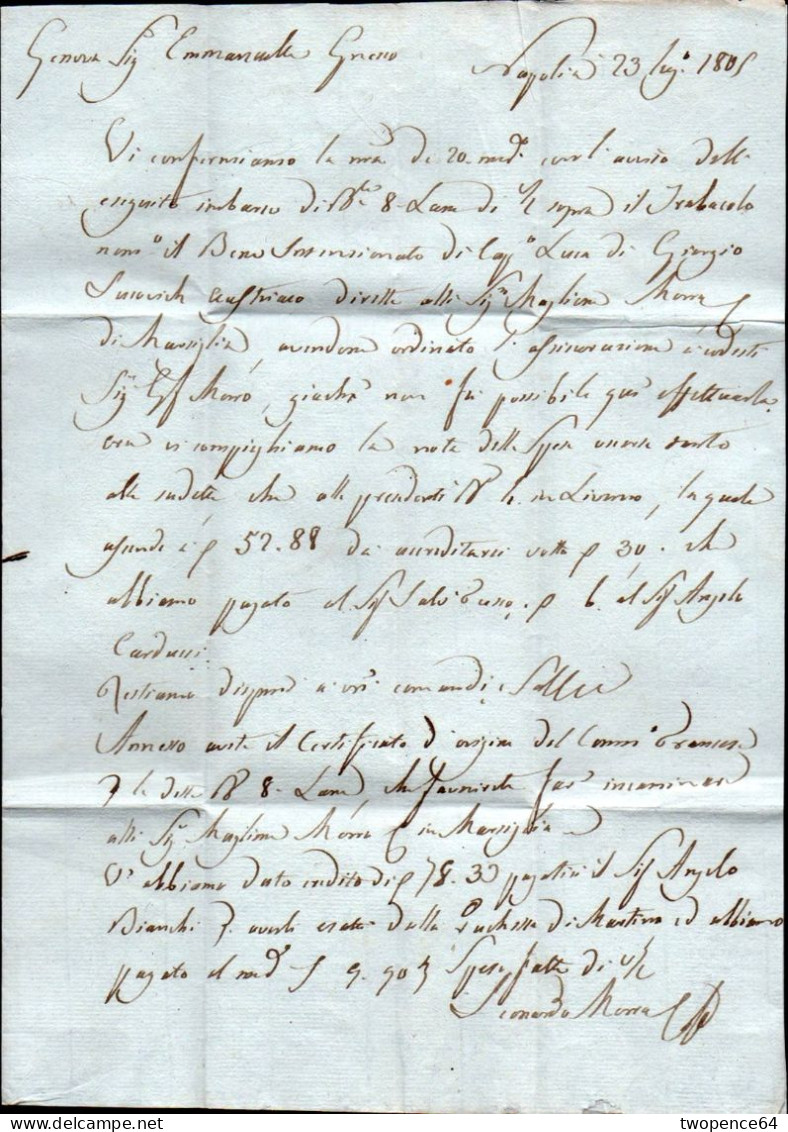 Genova Sig. Emmanuelle Gnecco Napoli 23 lug.o 1805
Vi confermiamo la nra di 20. med.o coll'avviso dell
eseguito imbarco di 8 Lana di sopra il Trabacolo
nom.o il Bene Intensionato di Cap.o Luca di Giorgio
austriaco diretto alli Sig.ri Maglione Morra
di Marsiglia, avendone ordinato l'assicurazione a codesti
Sig.ri Morro, giachè non fu possibile qui effettuarla.
ora vi compieghiamo la nota delle Spese occorse tanto
alle sudette che alle precedenti in Livorno, la quale
ascende a 52.88 da accreditarci sotto 30. che
abbiamo pagato al Sig. Salv 6. al Sig. Angelo
Carducci.
Restiamo a vri comandi, e
Annesso avete il Certificato d'origine del Comm.o Francese
p le dette 8. Lana, che favorirete far incaminare
alli Sig.ri Maglione Morra in Marsiglia
V'abbiamo dato credito di 78.33 pagatici il Sig. Angelo
Bianchi p. averli esatti dalla Duchessa di Martina ed abbiamo
pagato al med.o 9.90 Spese fatte di
Leonardo Morra
twopence64